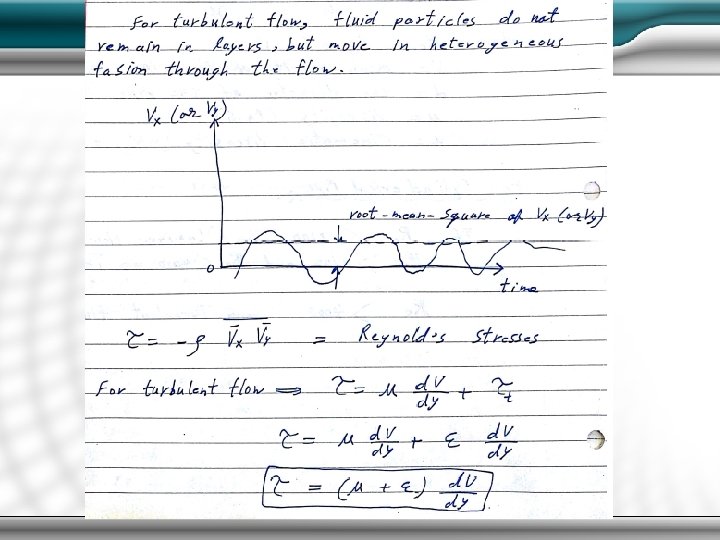 For turbulent flow, fluid particles do not
remain in layers, but move in heterogeneous
fasion through the flow.
Vx (or Vy)
root-mean-square of Vx (or Vy)
0
time
τ = -ρ V̅x V̅y = Reynold's stresses
For turbulent flow ⇒ τ = μ dV/dy + τt
τ = μ dV/dy + ε dV/dy
τ = (μ + ε) dV/dy